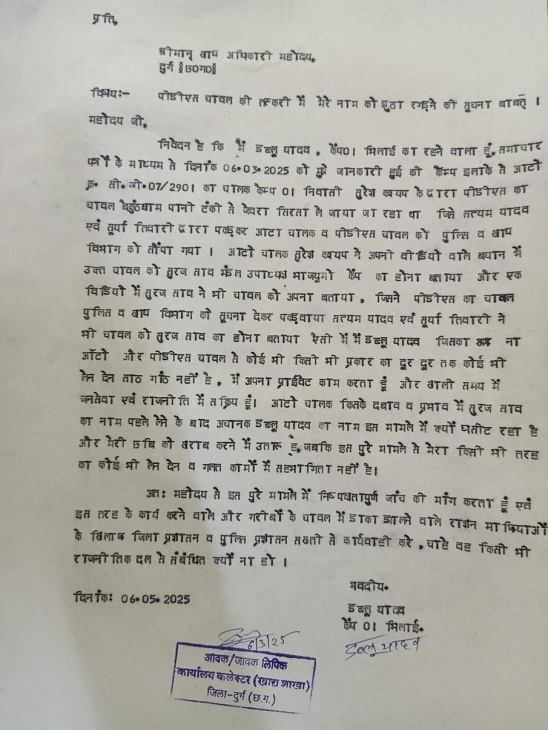 प्रति,
श्रीमान् खाद्य अधिकारी महोदय,
दुर्ग ॥छ०ग०॥
विषय:- पीडीएस चावल की तस्करी में मेरे नाम को झुठा रगड़ने की सूचना बाबत् ।
महोदय जी,
निवेदन है कि मैं डब्लू यादव, कैंप०1 भिलाई का रहने वाला हूँ, समाचार
पत्रों के माध्यम से दिनांक 06.03.2025 को मुझे जानकारी हुई की कैम्प इलाके से आटो
क्र. सी.जी.07/2901 का चालक कैम्प 01 निवासी सुरेश कश्यप के द्वारा पीडीएस का
चावल बैकुंठधाम पानी टंकी से जेवरा सिरसा ले जाया जा रहा था जिसे सत्यम यादव
एवं सूर्या तिवारी द्वारा पकड़कर आटा चालक व पीडीएस चावल को पुलिस व खाद्य
विभाग को सौंपा गया । आटो चालक सुरेश कश्यप ने अपनी वीडियो वाले बयान में
उक्त चावल को सुरज साव मंडल उपाध्यक्ष भाजयुमो कैंप का होना बताया और एक
विडियो में सुरज साव ने भी चावल को अपना बताया, जिसने पीडीएस का चावल
पुलिस व खाद्य विभाग को सूचना देकर पकड़वाया सत्यम यादव एवं सूर्या तिवारी ने
भी चावल को सुरज साव का होना बताया ऐसी में मैं डब्लू यादव जिसका ना
ऑटो और पीडीएस चावल से कोई भी किसी भी प्रकार का दूर दूर तक कोई भी
लेन देन साठ गांठ नहीं है, में अपना प्राईवेट काम करता हूँ और खाली समय में
जनसेवा एवं राजनीति में सक्रिय हूँ। आटो चालक किसके दबाव व प्रभाव में सुरज साव
का नाम पहले लेने के बाद अचानक डब्लू यादव का नाम इस मामले में क्यों घसीट रहा है
और मेरी छबि को खराब करने में उतारू है, जबकि इस पुरे मामले से मेरा किसी भी तरह
का कोई भी लेन देन व गलत कामों में सहभागिता नहीं है।
अत: महोदय से इस पुरे मामले में निष्पक्षतापुर्ण जाँच की माँग करता हूँ एवं
इस तरह के कार्य करने वाले और गरीबों के चावल में डाका डालने वाले राशन माफियाओं
के खिलाफ जिला प्रशासन व पुलिस प्रशासन सख्ती से कार्यवाही करे, चाहे वह किसी भी
राजनीतिक दल से संबंधित क्यों ना हो ।
भवदीय.
दिनांक: 06.05.2025
डब्लू यादव
कैंप 01 भिलाई.
डब्लू यादव
6/3/25
आवक/जावक लिपिक
कार्यालय कलेक्टर (खाद्य शाखा)
जिला-दुर्ग (छ.ग.)